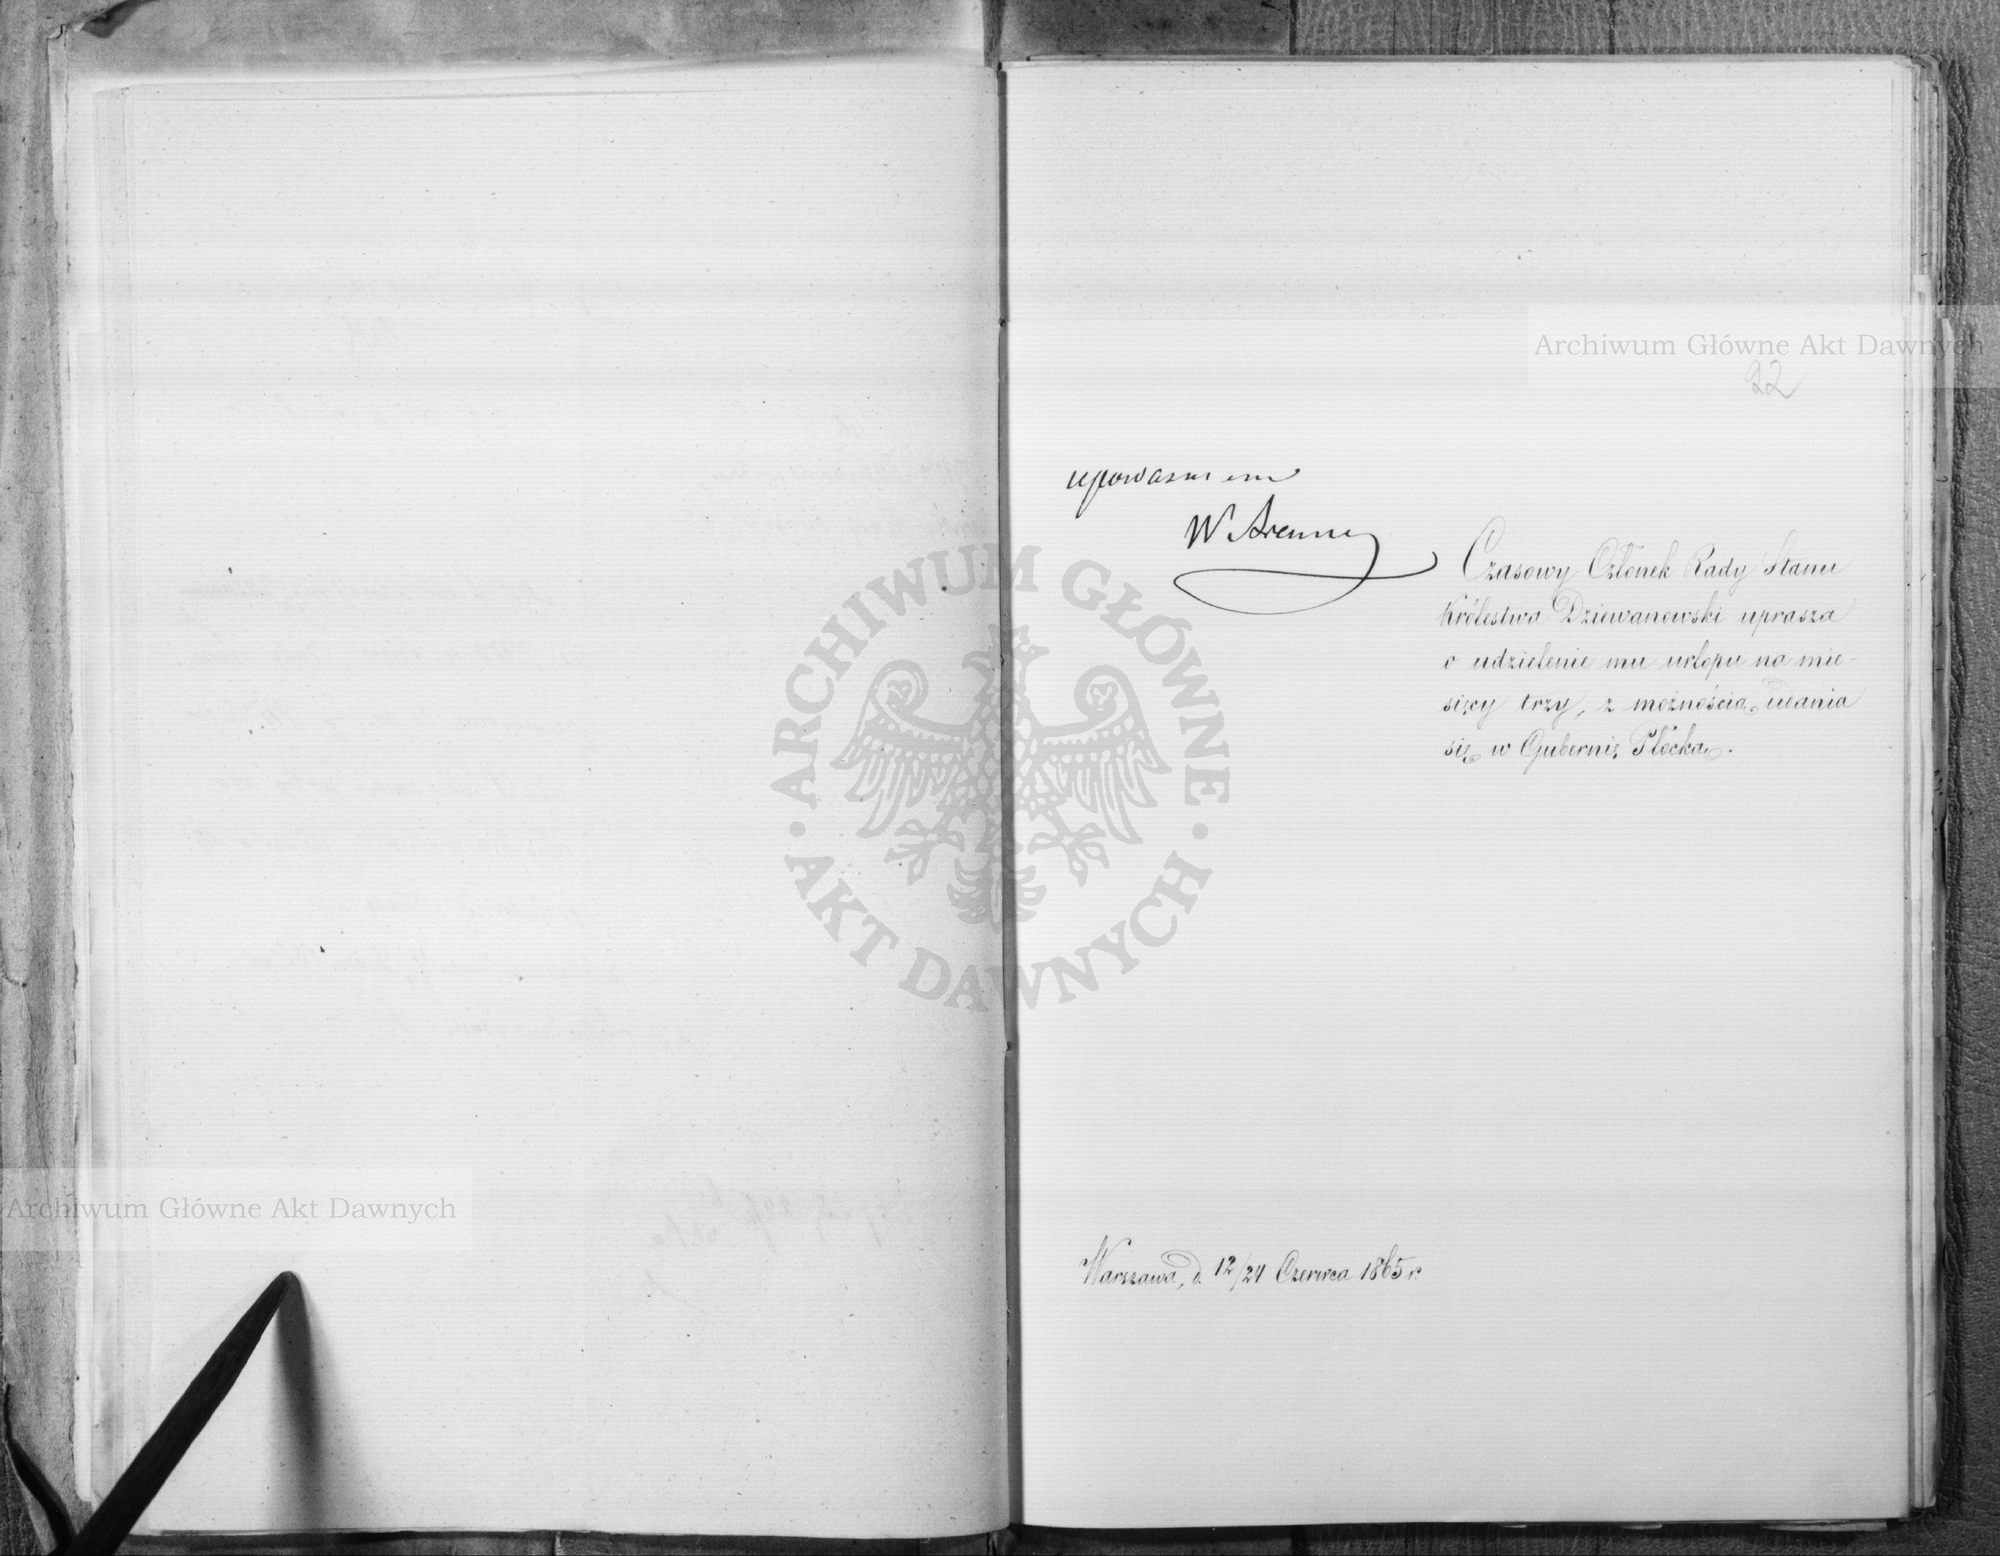 Archiwum Główne Akt Dawnych
22
upoważniam
Czasowy Członek Rady Stanu
Królestwa Dziewanowski uprasza
o udzielenie mu urlopu na mie-
sięcy trzy, z możnością udania
się w Gubernię Płócką.
ARCHIWUM GŁÓWNE
AKT DAWNYCH
Archiwum Główne Akt Dawnych
Warszawa, d. 12/24 Czerwca 1865 r.